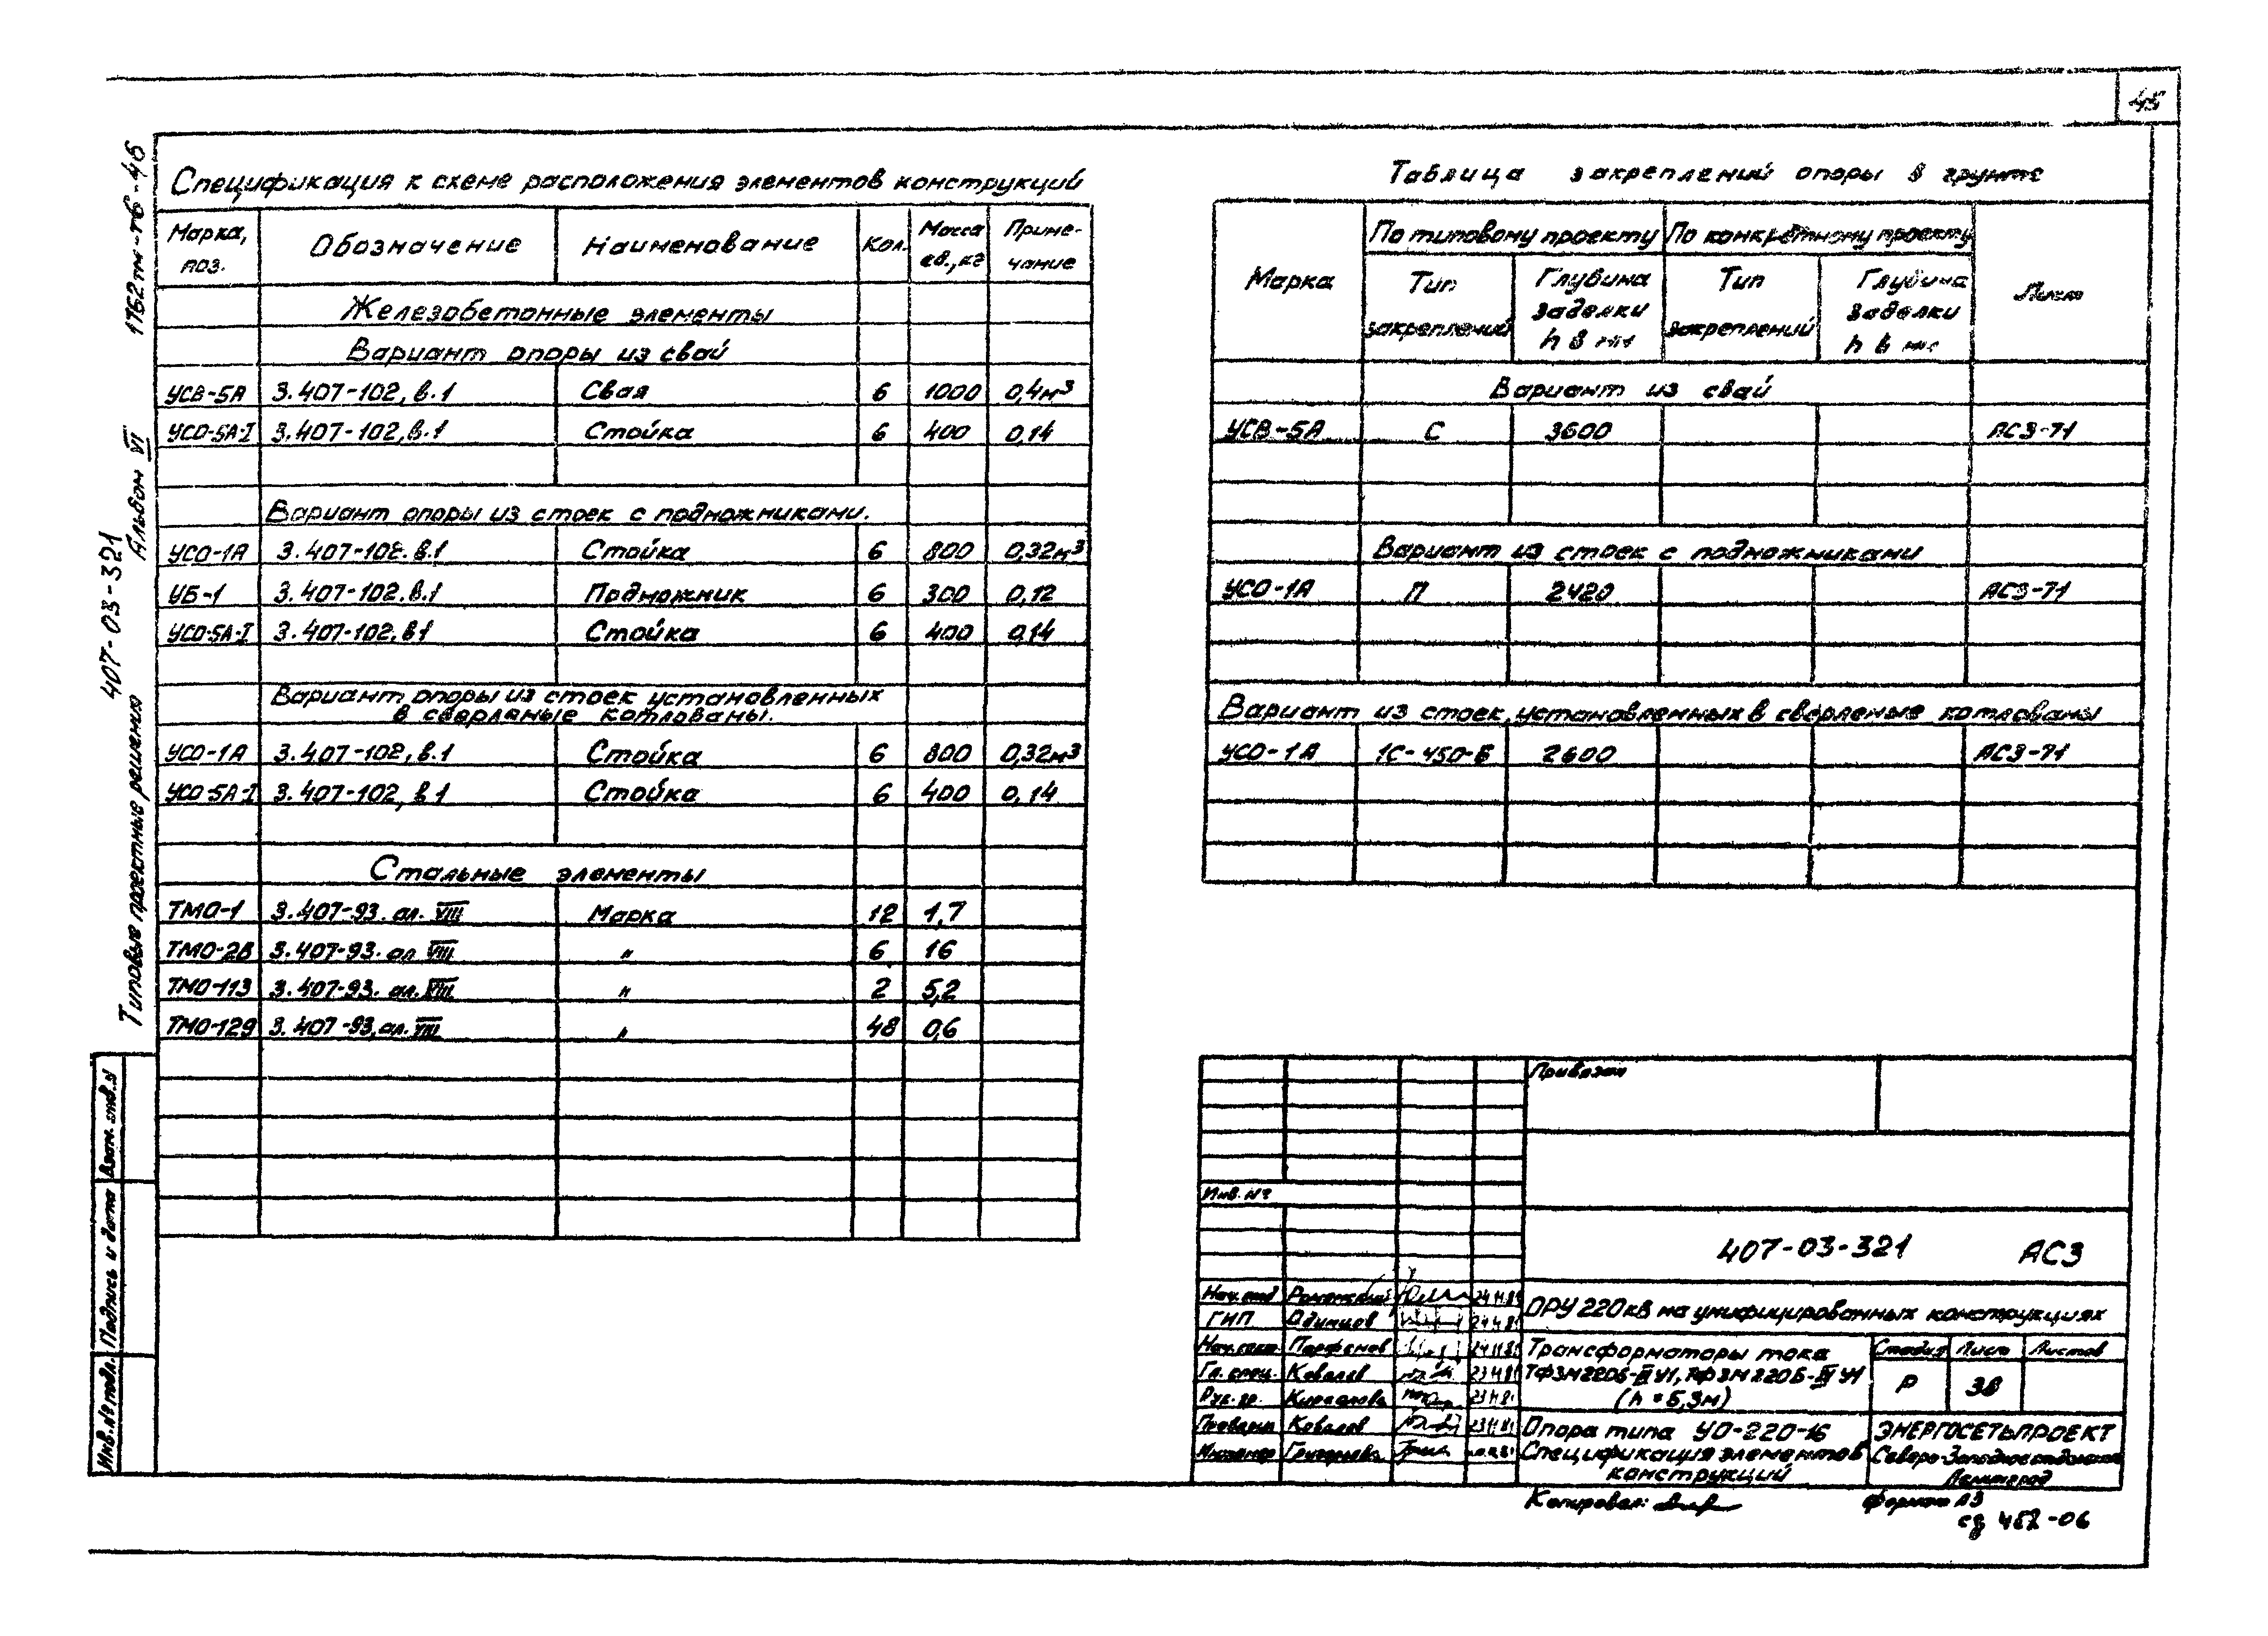 45
1762тм-т6-46
Альбом VI
407-03-321
Типовые проектные решения
Взам. инв.№
Подпись и дата
Инв.№ подл.
Спецификация к схеме расположения элементов конструкций
Марка, поз. Обозначение Наименование Кол. Масса ед., кг Приме-чание
Железобетонные элементы
Вариант опоры из свай
УСВ-5А 3.407-102, в.1 Свая 6 1000 0,4м³
УСО-5А-I 3.407-102, в.1 Стойка 6 400 0,14
Вариант опоры из стоек с подножниками.
УСО-1А 3.407-102. в.1 Стойка 6 800 0,32м³
УБ-1 3.407-102. в.1 Подножник 6 300 0,12
УСО-5А-I 3.407-102. в1 Стойка 6 400 0,14
Вариант опоры из стоек установленных
в сверленые котлованы.
УСО-1А 3.407-102, в.1 Стойка 6 800 0,32м³
УСО-5А-I 3.407-102, в1 Стойка 6 400 0,14
Стальные элементы
ТМО-1 3.407-93. ал. VIII Марка 12 1,7
ТМО-2В 3.407-93. ал VIII " 6 16
ТМО-113 3.407-93. ал. VIII " 2 5,2
ТМО-129 3.407-93, ал. VIII " 48 0,6
Таблица закреплений опоры в грунте
Марка По типовому проекту По конкретному проекту Лист
Тип закреплений Глубина заделки h в мм Тип закреплений Глубина заделки h в мм
Вариант из свай
УСВ-5А С 3600 АС3-71
Вариант из стоек с подножниками
УСО-1А П 2420 АС3-71
Вариант из стоек, установленных в сверленые котлованы
УСО-1А 1С-450-Б 2600 АС3-71
Привязан
Инв. №
407-03-321 АС3
Нач. отд
ГИП Одинцов
Парфенов
Гл. спец. Ковалев
Рук. гр.
Ковалев
Инженер
ОРУ 220кВ на унифицированных конструкциях
Трансформаторы тока
ТФЗМ220Б-III У1, ТФЗМ 220Б-IV У1
(h = 5,3м)
Стадия Лист Листов
Р 38
Опора типа УО-220-16
Спецификация элементов
конструкций
ЭНЕРГОСЕТЬПРОЕКТ
Северо-Западное отделение
Ленинград
Копировал:
Формат А3
-06